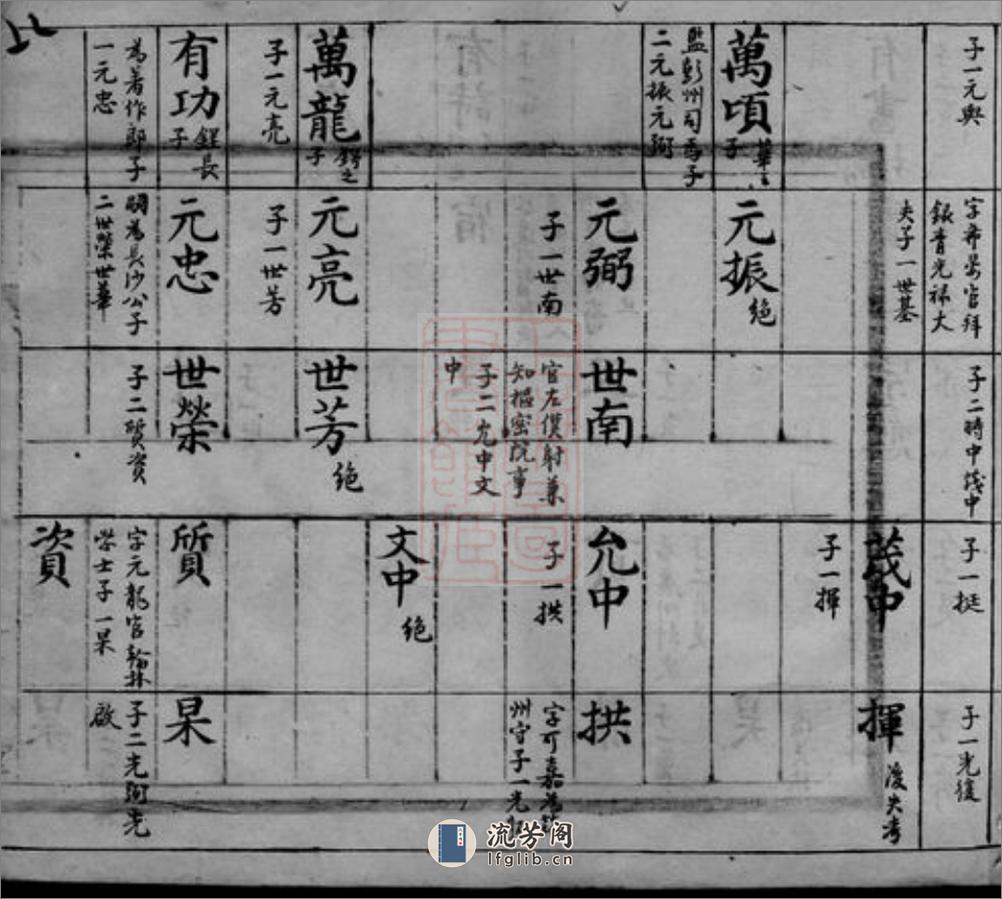 子一元與
萬頃
華之子
監彭州司馬子
二元振元弼
萬龍
鍔之子
子一元亮
有功
鋥長子
為著作郎子
一元忠
字弁晏官拜
銀青光祿大
夫子一世基
元振
絶
元弼
子一世南
元亮
子一世芳
元忠
嗣為長沙公子
二世榮世華
子二時中茂中
世南
官左僕射兼
知樞密院事
子二允中文
中
世芳
絶
世榮
子二質資
子一挺
茂中
子一揮
允中
子一拱
文中
絶
質
字元龍官翰林
學士子一杲
資
子一光復
揮
後失考
拱
字可嘉為
州守子一光
杲
子二光弼光
啟
流芳阁
lfglib.cn